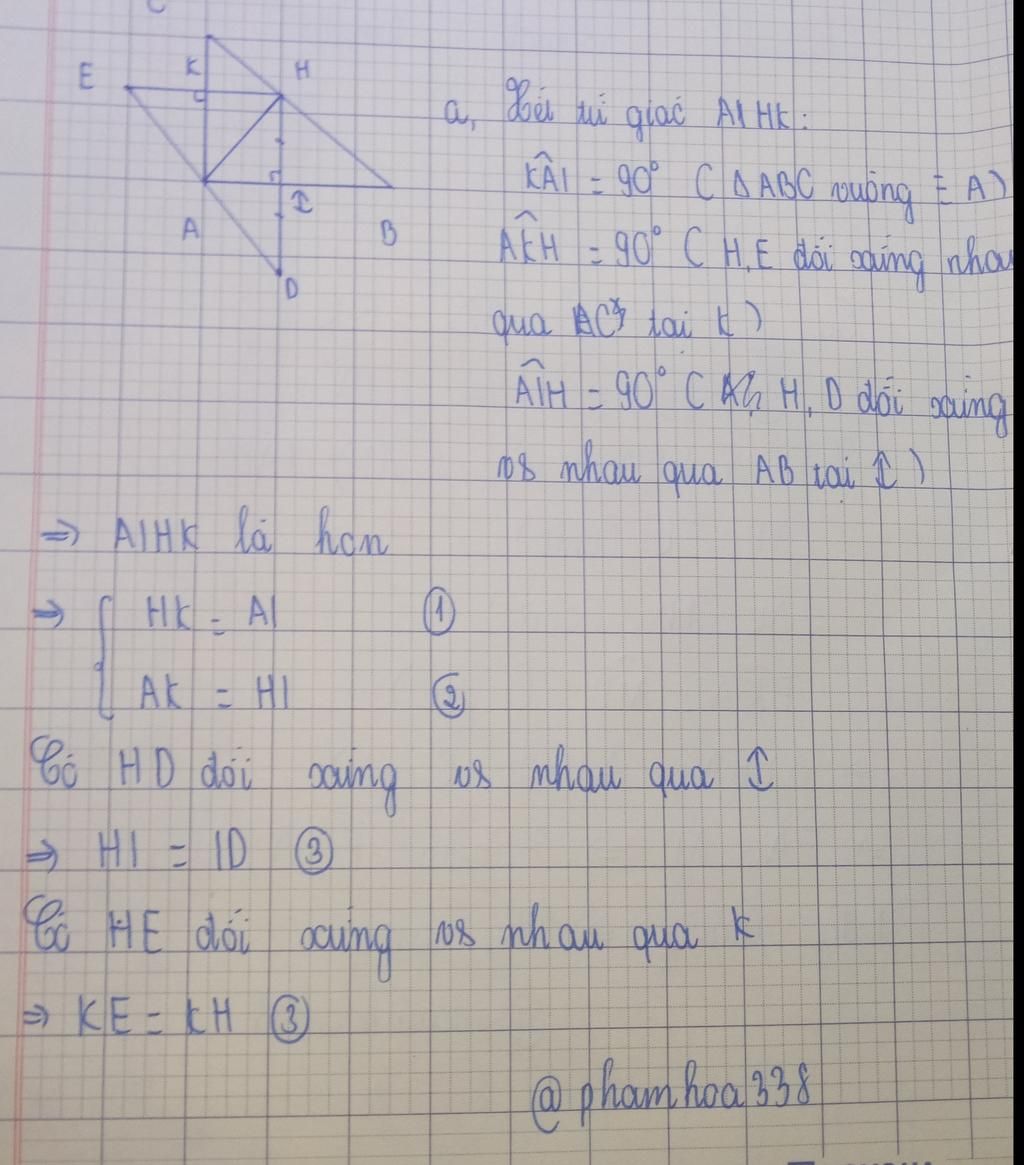 C
E K H
A I B
D
a, Xét tứ giác AIHK:
KÂI = 90° (Δ ABC vuông t A)
AK̂H = 90° ( H, E đối xứng nhau
qua AC tại K )
AÎH = 90° ( H, D đối xứng
vs nhau qua AB tại I )
=> AIHK là hcn
=> { HK = AI ①
AK = HI ②
Có HD đối xứng vs nhau qua I
=> HI = ID ③
Có HE đối xứng vs nhau qua K
=> KE = KH ③
@phamhoa338